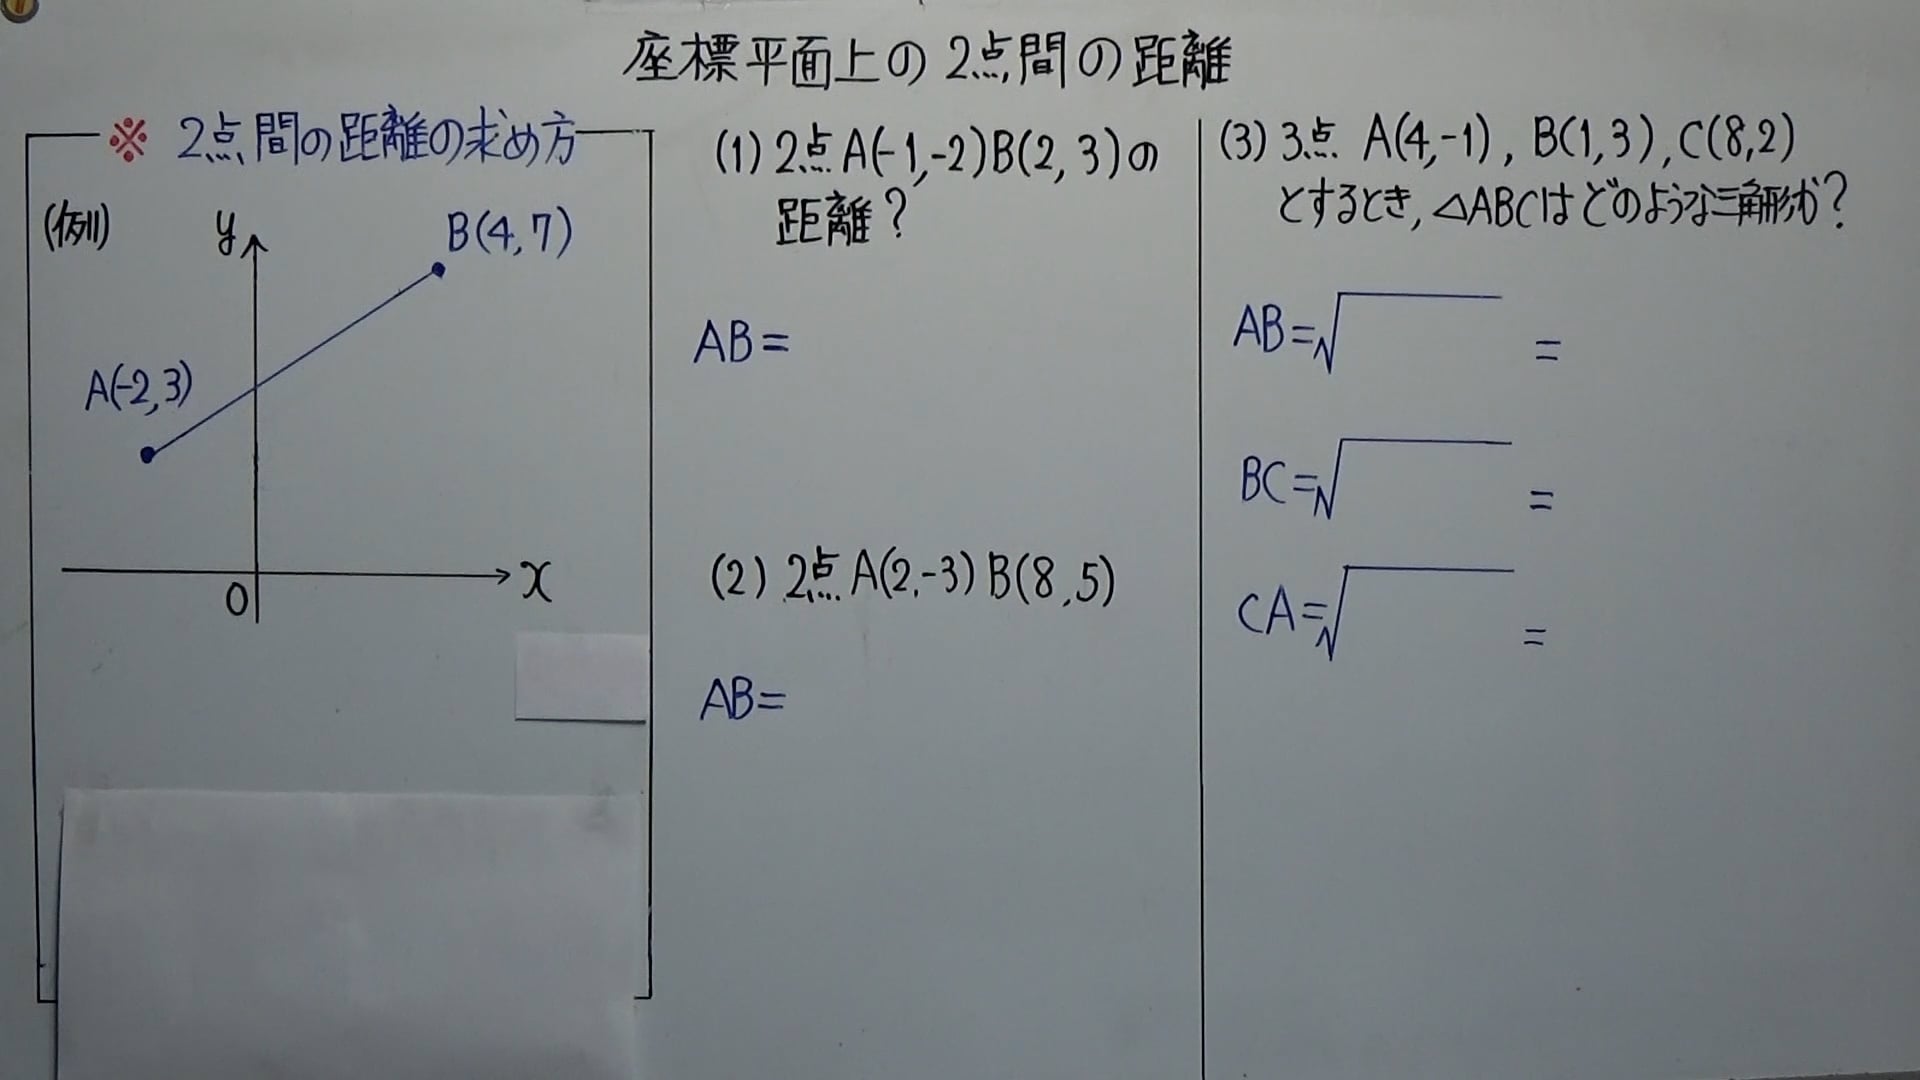 座標平面上の2点間の距離
※ 2点間の距離の求め方
(例)
y
B(4,7)
A(-2,3)
x
0
(1) 2点A(-1,-2)B(2,3)の
距離?
AB=
(2) 2点A(2,-3)B(8,5)
AB=
(3) 3点 A(4,-1), B(1,3), C(8,2)
とするとき, △ABCはどのような三角形か?
AB=√ =
BC=√ =
CA=√ =